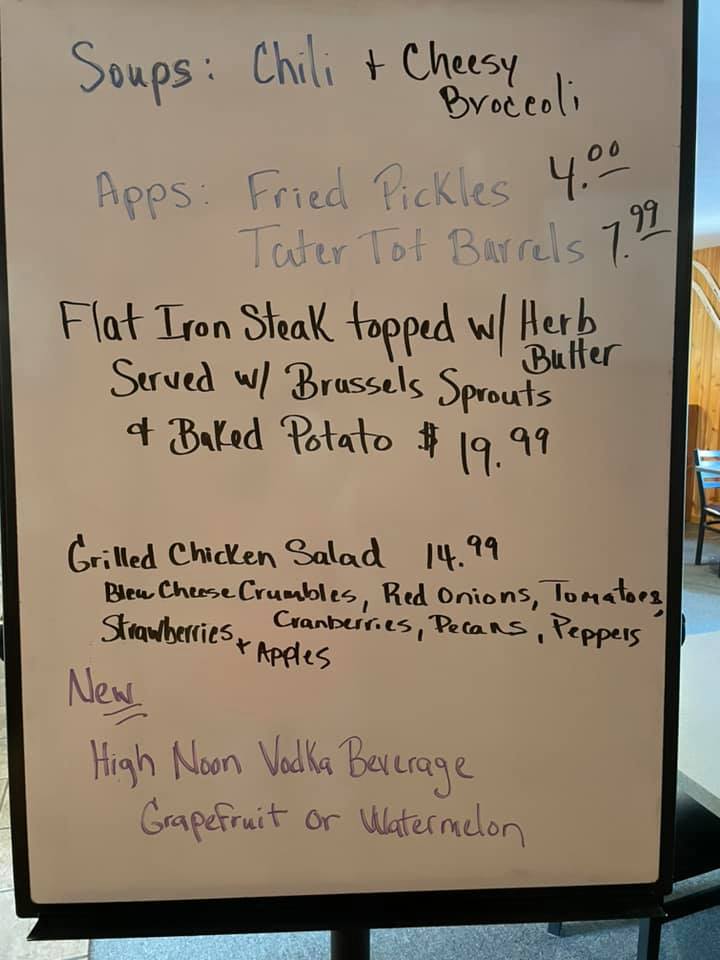 Soups: Chili + Cheesy
Broccoli
Apps: Fried Pickles 4.00
Tater Tot Barrels 7.99
Flat Iron Steak topped w/ Herb
Butter
Served w/ Brussels Sprouts
& Baked Potato $19.99
Grilled Chicken Salad 14.99
Bleu Cheese Crumbles, Red Onions, Tomatoes,
Strawberries, Cranberries, Pecans, Peppers
+ Apples
New
High Noon Vodka Beverage
Grapefruit or Watermelon